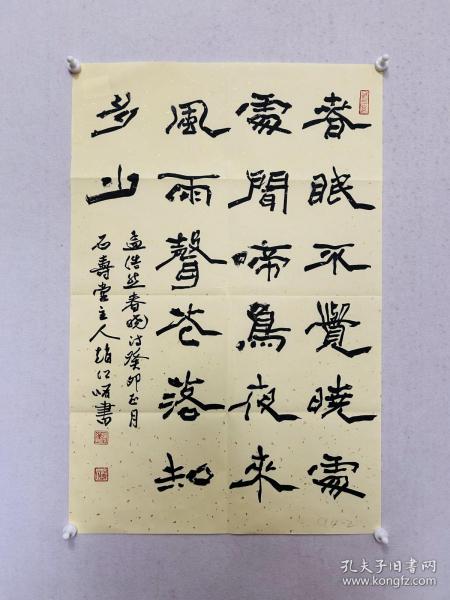 春眠不覺曉處
處聞啼鳥夜來
風雨聲花落知
多少
孟浩然春晓诗癸卯正月
石壽堂主人趙江書
孔夫子旧书网
www.kongfz.com